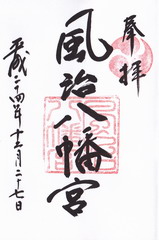 奉拝
風治八幡宮
平成二十四年十二月二十七日